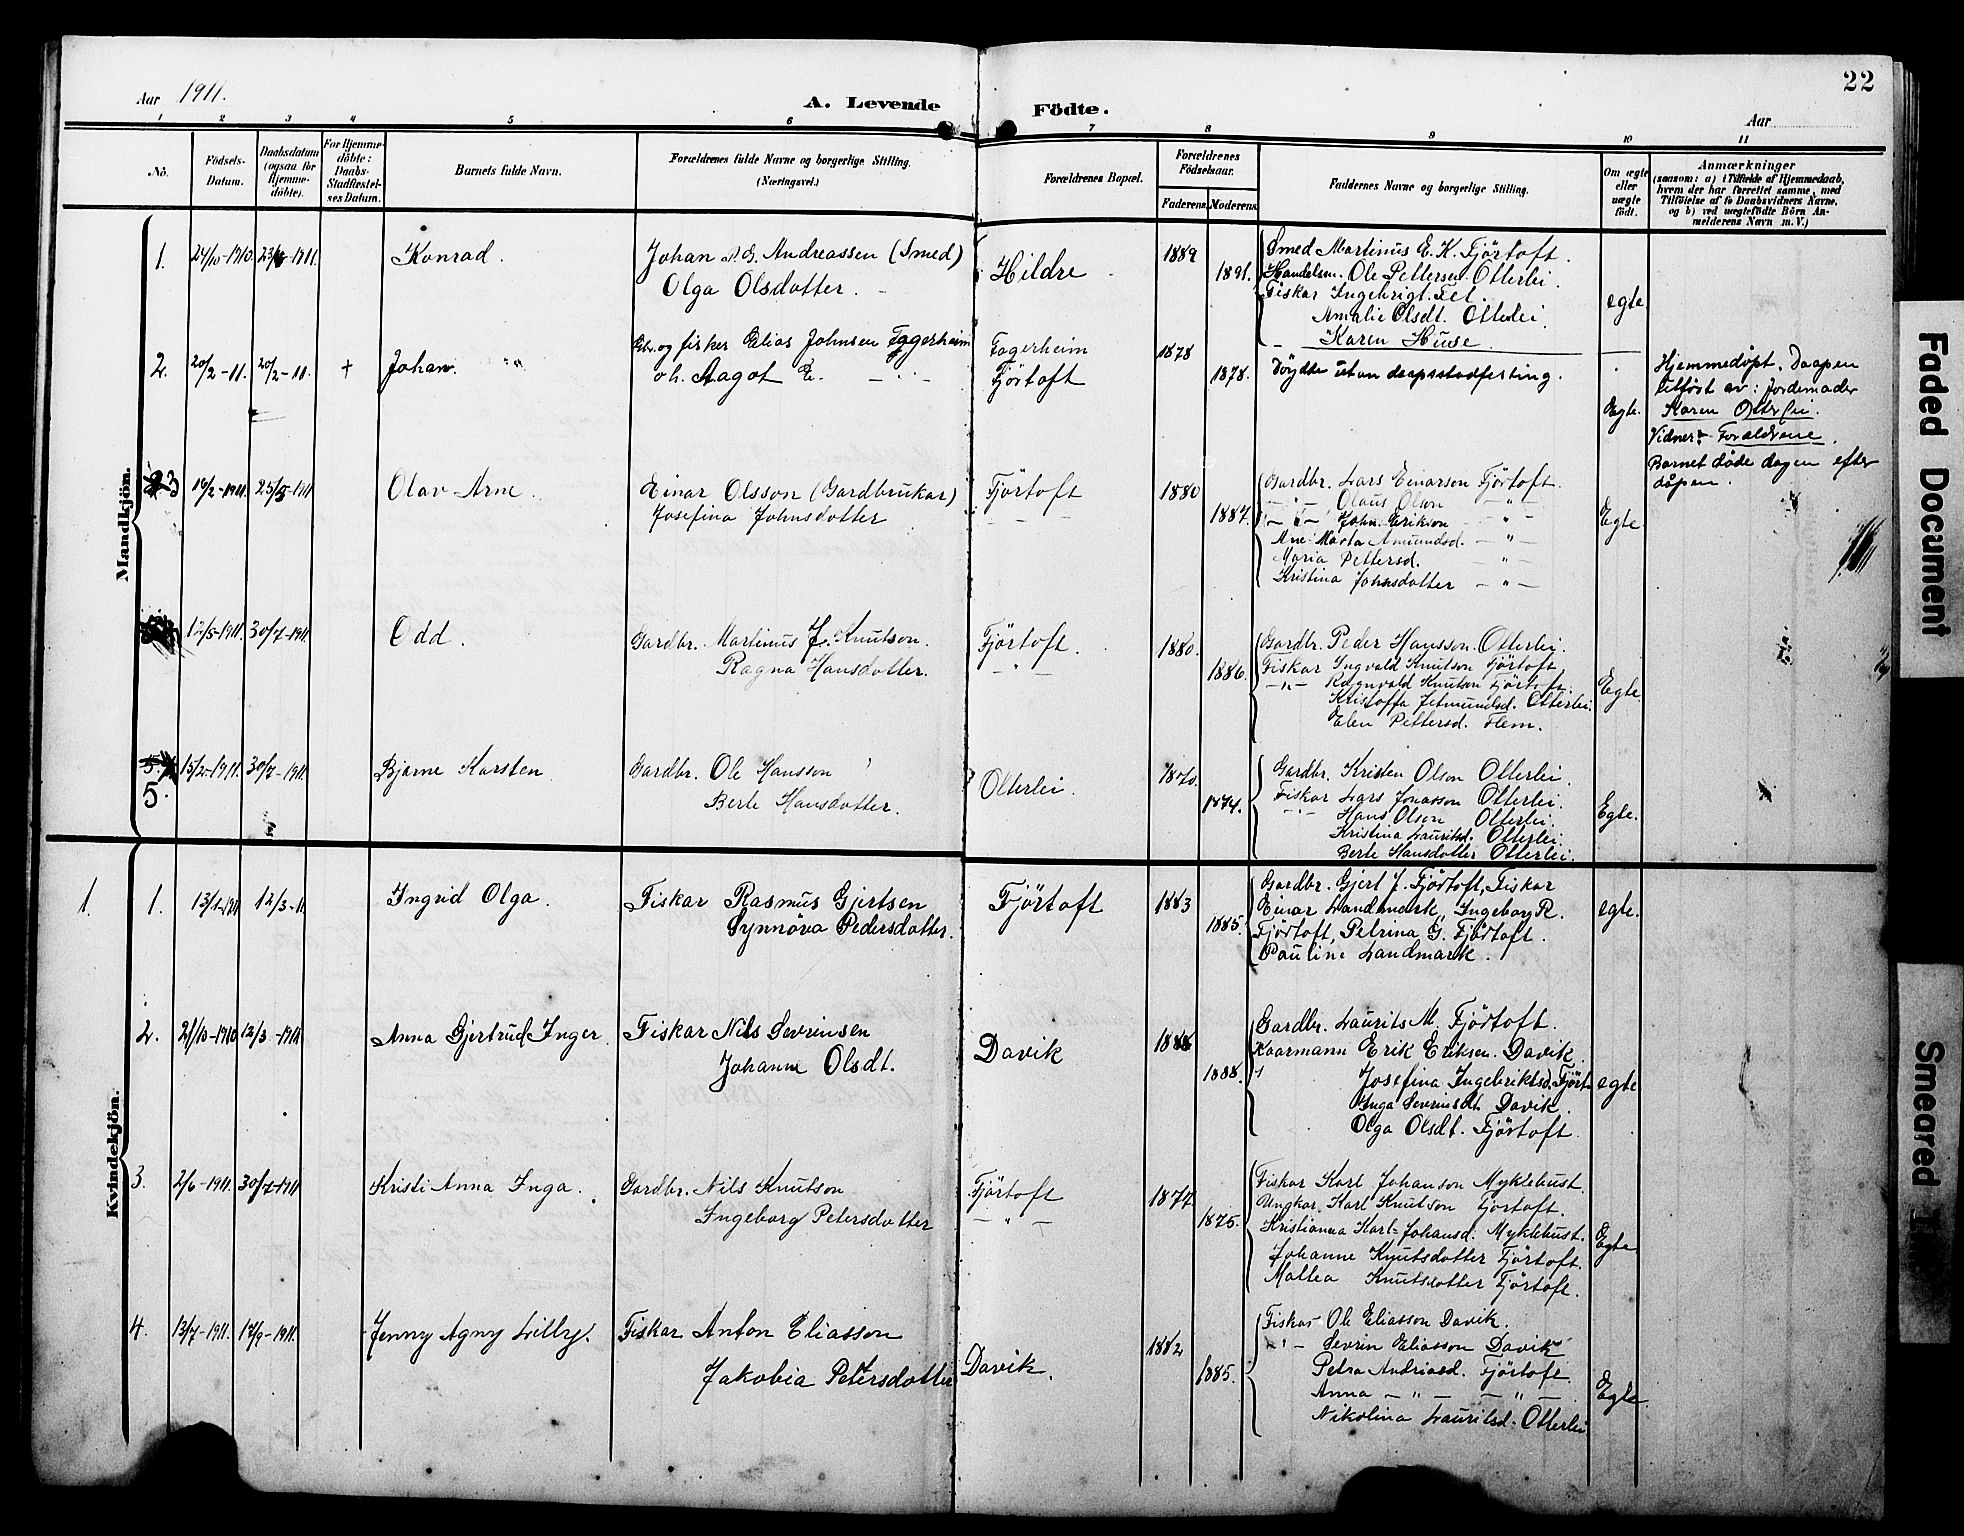 22
Aar 1911.
A. Levende Födte.
Aar
1 2 3 4 5 6 7 8 9 10 11
No.
Födsels-Datum.
Daabsdatum (ogsaa for Hjemme-döbte).
For Hjemme-döbte: Daabs-Stadfæstel-ses Datum.
Barnets fulde Navn.
Forældrenes fulde Navne og borgerlige Stilling.
(Næringsvei.)
Forældrenes Bopæl.
Forældrenes Födselsaar.
Faderens. Moderens.
Faddernes Navne og borgerlige Stilling.
Om ægte eller uægte födt.
Anmærkninger
(saasom: a) i Tilfælde af Hjemmedaab,
hvem der har forrettet samme, med
Tilföielse af to Daabsvidners Navne,
og b) ved uægtefödte Börn An-
melderens Navn m. V.)
Mandkjön.
1. 24/10-1910. Konrad. Johan P. G. Andreassen (Smed) Hildre 1889
Olga Olsdotter. 1891.
Smed Martinus E. K. Fjörtoft.
Handelsm. Ole Pettersen Otterlei.
Fiskar Ingebrigt Fet.
Amalie Olsdt. Otterlei.
Karen Huse
egte
2. 20/2-11. 20/2-11. + Johan.
Gbr. og fisker Elias Johnsen Fagerheim
oh. Aagot E.
Fagerheim
Fjörtoft
1878
1878.
Döydde utan daapsstadfesting.
Egte.
Hjemmedöpt. Daapen
utfört av: Jordemoder
Karen Otterlei.
Vidner: Forældrene.
Barnet döde dagen efter
dåpen.
3 Olav Arne. Einar Olsson (Gardbrukar) Fjörtoft 1880
Josefina Johnsdotter 1887.
Gardbr. Lars Einarson Fjörtoft.
Olaus Olson
John Erikson
Ane Marta Amundsd.
Maria Pettersd.
Kristina Johnsdotter
Egte.
12/5-1911. 30/7-1911. Odd. Gardbr. Martinus J. Knutson. Fjörtoft. 1880.
Ragna Hansdotter. 1886.
Gardbr. Peder Hansson Otterlei.
Fiskar Ingvald Knutson Fjörtoft.
Ragnvald Knutson Fjörtoft.
Kristoffa Jetmundsd. Otterlei.
Elen Pettersd. Flem.
Egte.
5. 15/2-1911. 30/7-1911 Bjarne Karsten Gardbr. Ole Hansson Otterlei. 1870.
Berte Hansdotter. 1874.
Gardbr. Kristen Olson Otterlei.
Fiskar Lars Jonasson Otterlei.
Hans Olson Otterlei.
Kristina Lauritsd. Otterlei.
Berte Hansdotter Otterlei.
Egte.
Kvindekjön.
1. 1. 12/3-11. Ingrid Olga. Fiskar Rasmus Gjertsen Fjörtoft 1883
Synnöva Pedersdotter. 1885.
Gardbr. Gjert J. Fjörtoft, Fiskar
Einar Landmark, Ingeborg R.
Fjörtoft, Petrina G. Fjörtoft.
Pauline Landmark.
egte.
2. 21/10-1910 12/3-1911 Anna Gjertrud Inger. Fiskar Nils Sevrinsen Davik
Johanne Olsdt. 1888.
Gardbr. Laurits M. Fjörtoft.
Kaarmann Erik Eriksen. Davik.
Josefina Ingebriktsd. Fjört.
Inga Sevrinsdt. Davik.
Olga Olsdt. Fjörtoft.
egte
3. 2/6-1911. 30/7-1911 Kristi Anna Inga. Gardbr. Nils Knutson Fjörtoft 1874
Ingeborg Petersdotter 1875.
Fiskar Karl Johanson Myklebust.
Ungkar. Karl Knutson Fjörtoft.
Kristianna Karl-Johansd. Myklebust.
Johanne Knutsdotter Fjörtoft.
Mallea Knutsdotter Fjörtoft.
Egte
4. 13/7-1911. 17/9-1911. Jenny Agny Lilly. Fiskar Anton Eliasson Davik. 1882
Jakobia Petersdotter 1885.
Fiskar Ole Eliasson Davik.
Sevrin Eliasson Davik
Petra Andriasd. Fjörtoft
Anna
Nikolina Lauritsd. Otterlei
Egte
Faded Document
Smeared